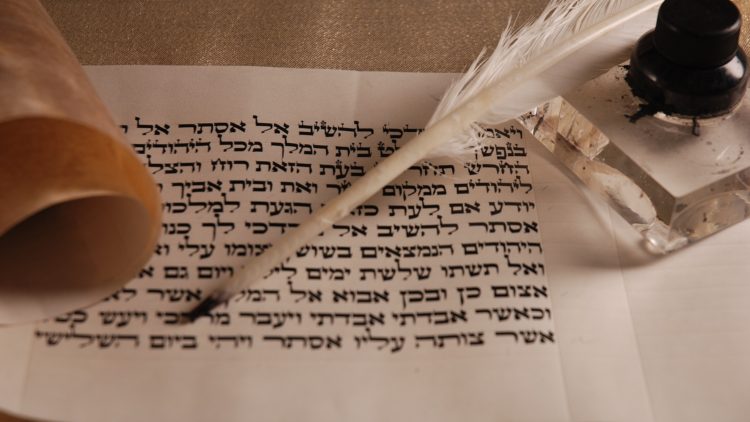 ויאמר להשיב אל אסתר אל
בנפשך בית המלך מכל היהודים
החרש בעת הזאת רוח והצלה
ליהודים ממקום ואת ובית אביך
יודע אם לעת הגעת למלכות
אסתר להשיב אל לך כנוס
היהודים הנמצאים בשושן וצומו עלי
ואל תשתו שלשת ימים ויום גם
אצום כן ובכן אבוא אל המלך אשר
וכאשר אבדתי אבדתי ויעבר ויעש
אשר צותה עליו אסתר ויהי ביום השלישי